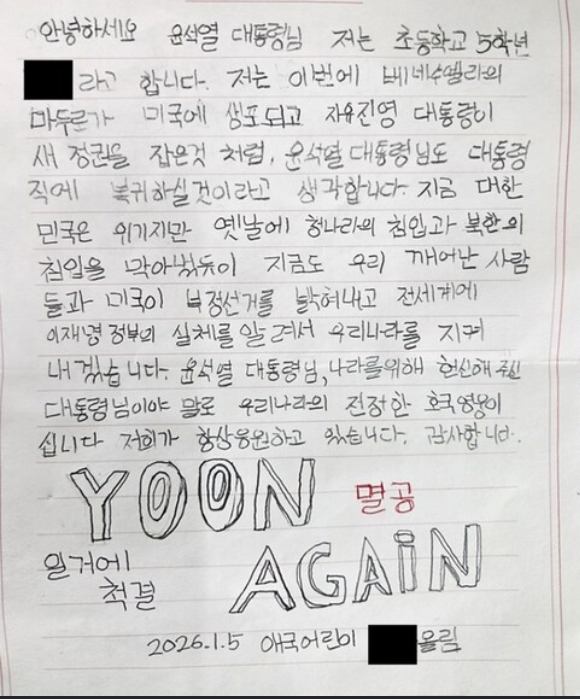 안녕하세요 윤석열 대통령님 저는 초등학교 5학년
라고 합니다. 저는 이번에 베네수엘라의
마두로가 미국에 생포되고 자유진영 대통령이
새 정권을 잡은것 처럼, 윤석열 대통령님도 대통령
직에 복귀하실것이라고 생각합니다. 지금 대한
민국은 위기지만 옛날에 청나라의 침입과 북한의
침입을 막아냈듯이 지금도 우리 깨어난 사람
들과 미국이 부정선거를 밝혀내고 전세계에
이재명 정부의 실체를 알려서 우리나라를 지켜
내겠습니다. 윤석열 대통령님, 나라를위해 헌신해 주신
대통령님이야 말로 우리나라의 진정한 호국영웅이
십니다 저희가 항상응원하고 있습니다. 감사합니다.
YOON 멸공
일거에
척결
AGAiN
2026.1.5 애국어린이 올림